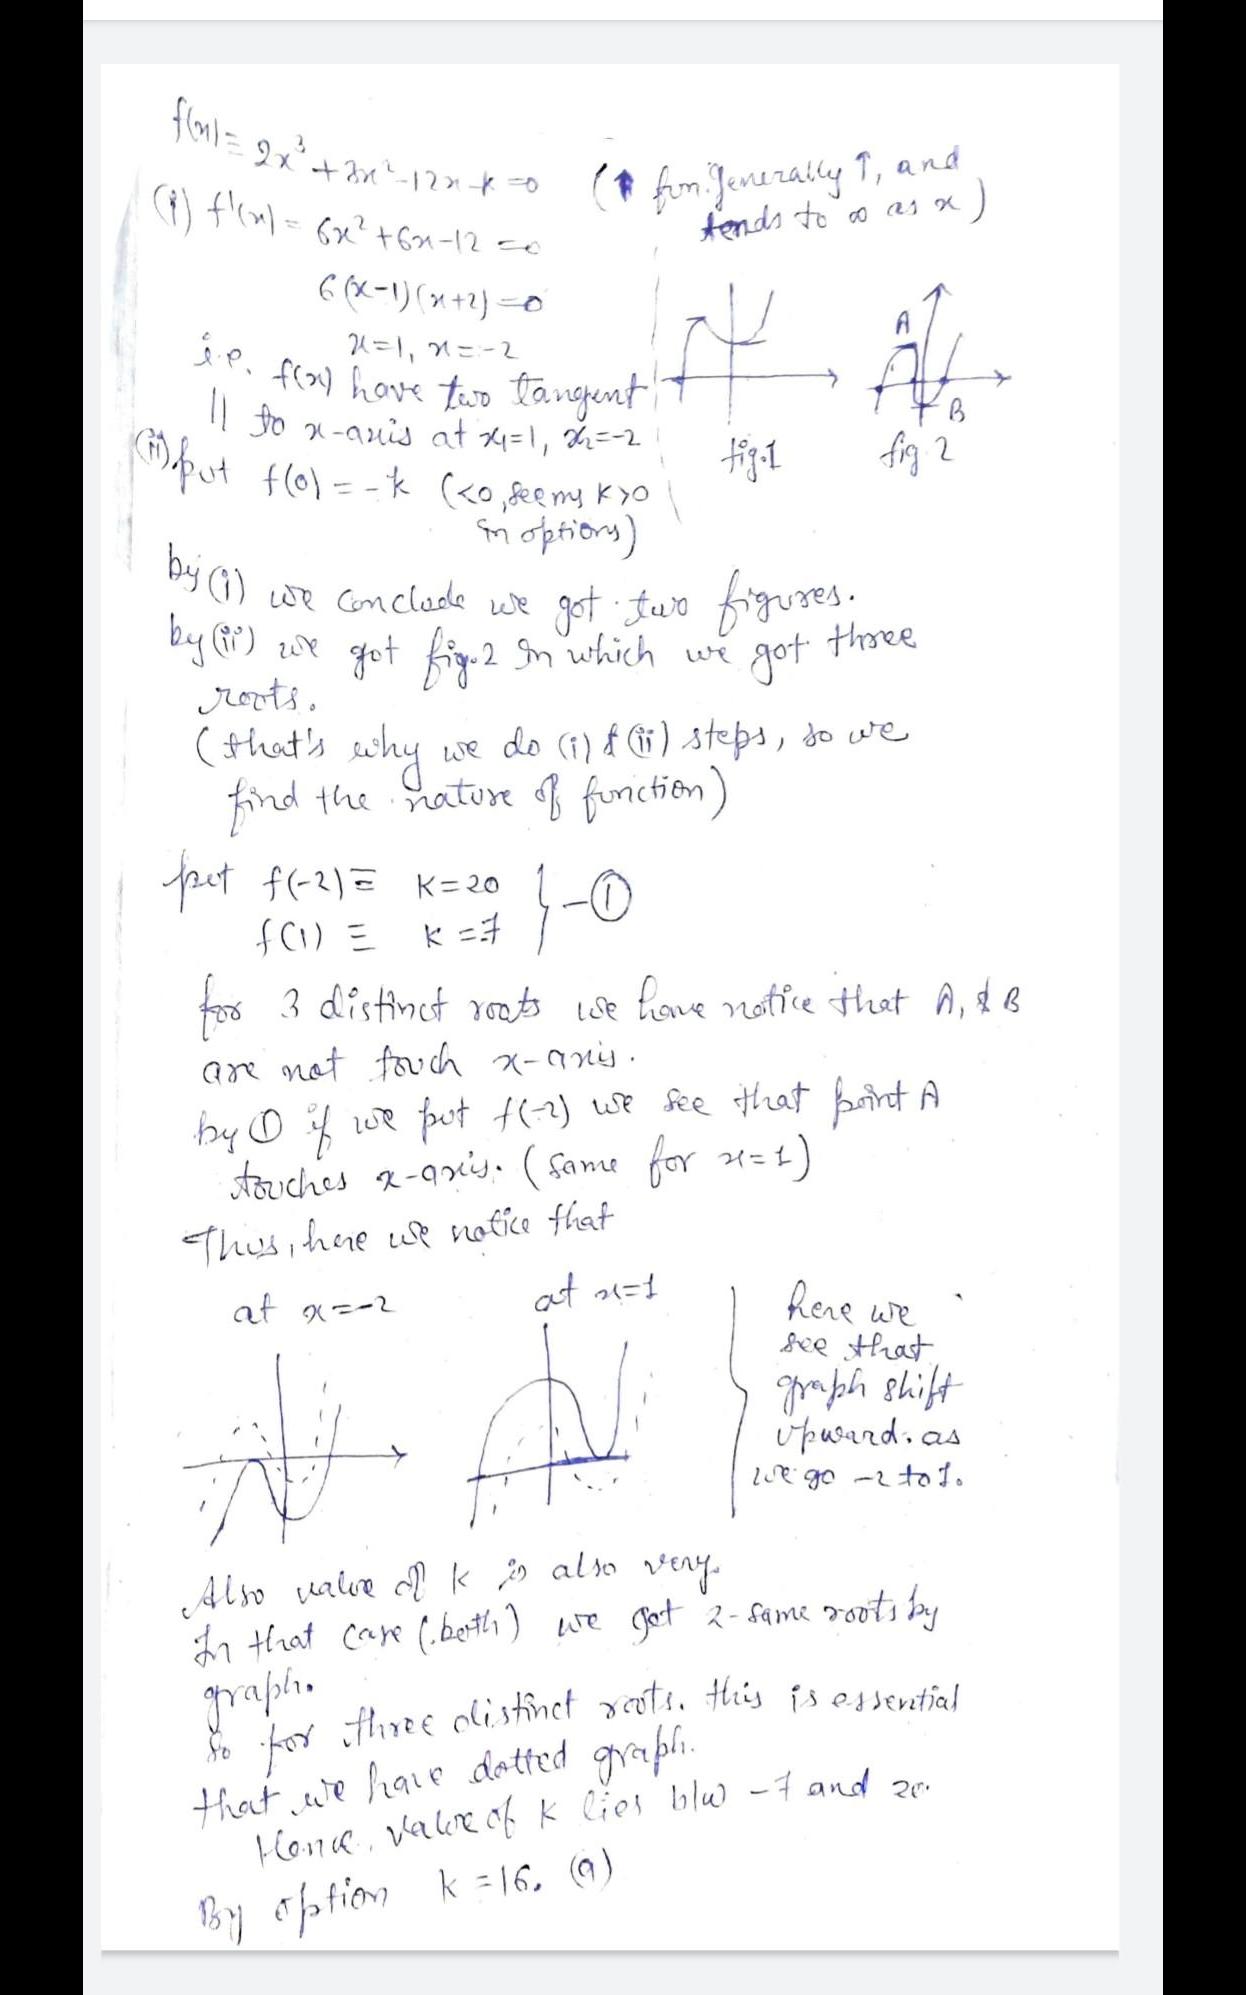 f(x) ≡ 2x³ + 3x² - 12x - k = 0
(↑ fun. generally ↑, and
tends to ∞ as x)
(i) f'(x) = 6x² + 6x - 12 = 0
6(x-1)(x+2) = 0
x = 1, x = -2
i.e. f(x) have two tangent
|| to x-axis at x₁=1, x₂=-2
fig.1
A
B
fig 2
(ii) put f(0) = -k (<0, seems k>0
in options)
by (i) we conclude we got two figures.
by (ii) we got fig.2 in which we got three
roots.
(that's why we do (i) & (ii) steps, so we
find the nature of function)
put f(-2) ≡ k = 20
f(1) ≡ k = -7
} - ①
for 3 distinct roots we have notice that A, & B
are not touch x-axis.
by ① if we put f(-2) we see that point A
touches x-axis. (same for x=1)
Thus, here we notice that
at x=-2
at x=1
here we
see that
graph shift
upward. as
we go -2 to 1.
Also value of k is also very.
In that case (both) we get 2-same roots by
graph.
So for three distinct roots. this is essential
that we have dotted graph.
Hence, value of k lies b/w -7 and 20.
By option k = 16. (a)